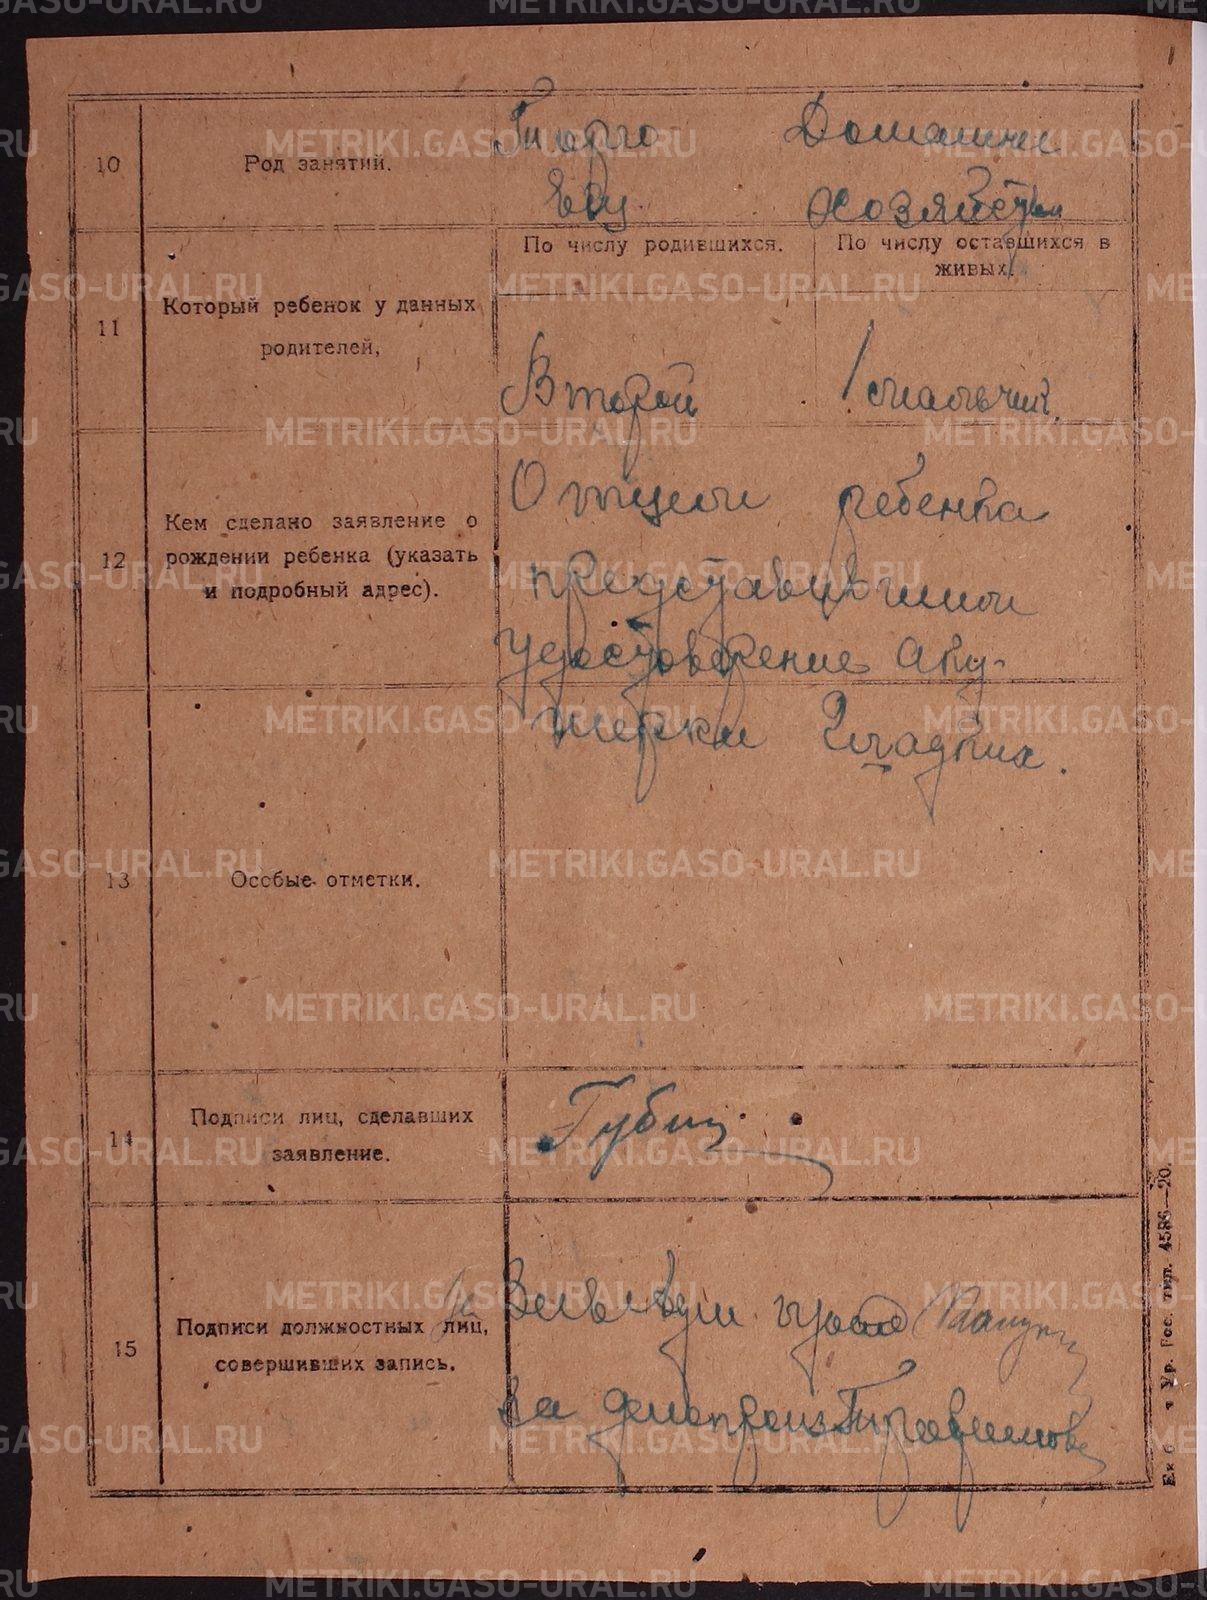 10
Род занятий.
Домашнее
хозяйство
11
Который ребенок у данных
родителей,
По числу родившихся.
По числу оставшихся в
живых.
Второй
1 мальчик.
12
Кем сделано заявление о
рождении ребенка (указать
и подробный адрес).
Отцом ребенка
представившим
удостоверение аку-
шерки Гладких.
13
Особые отметки.
14
Подписи лиц, сделавших
заявление.
Губин
15
Подписи должностных лиц,
совершивших запись.
За делопроиз
Ур. Гос. тип. 4586—20.
METRIKI.GASO-URAL.RU